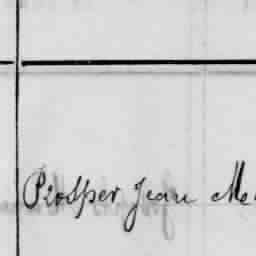 Prosper Jean